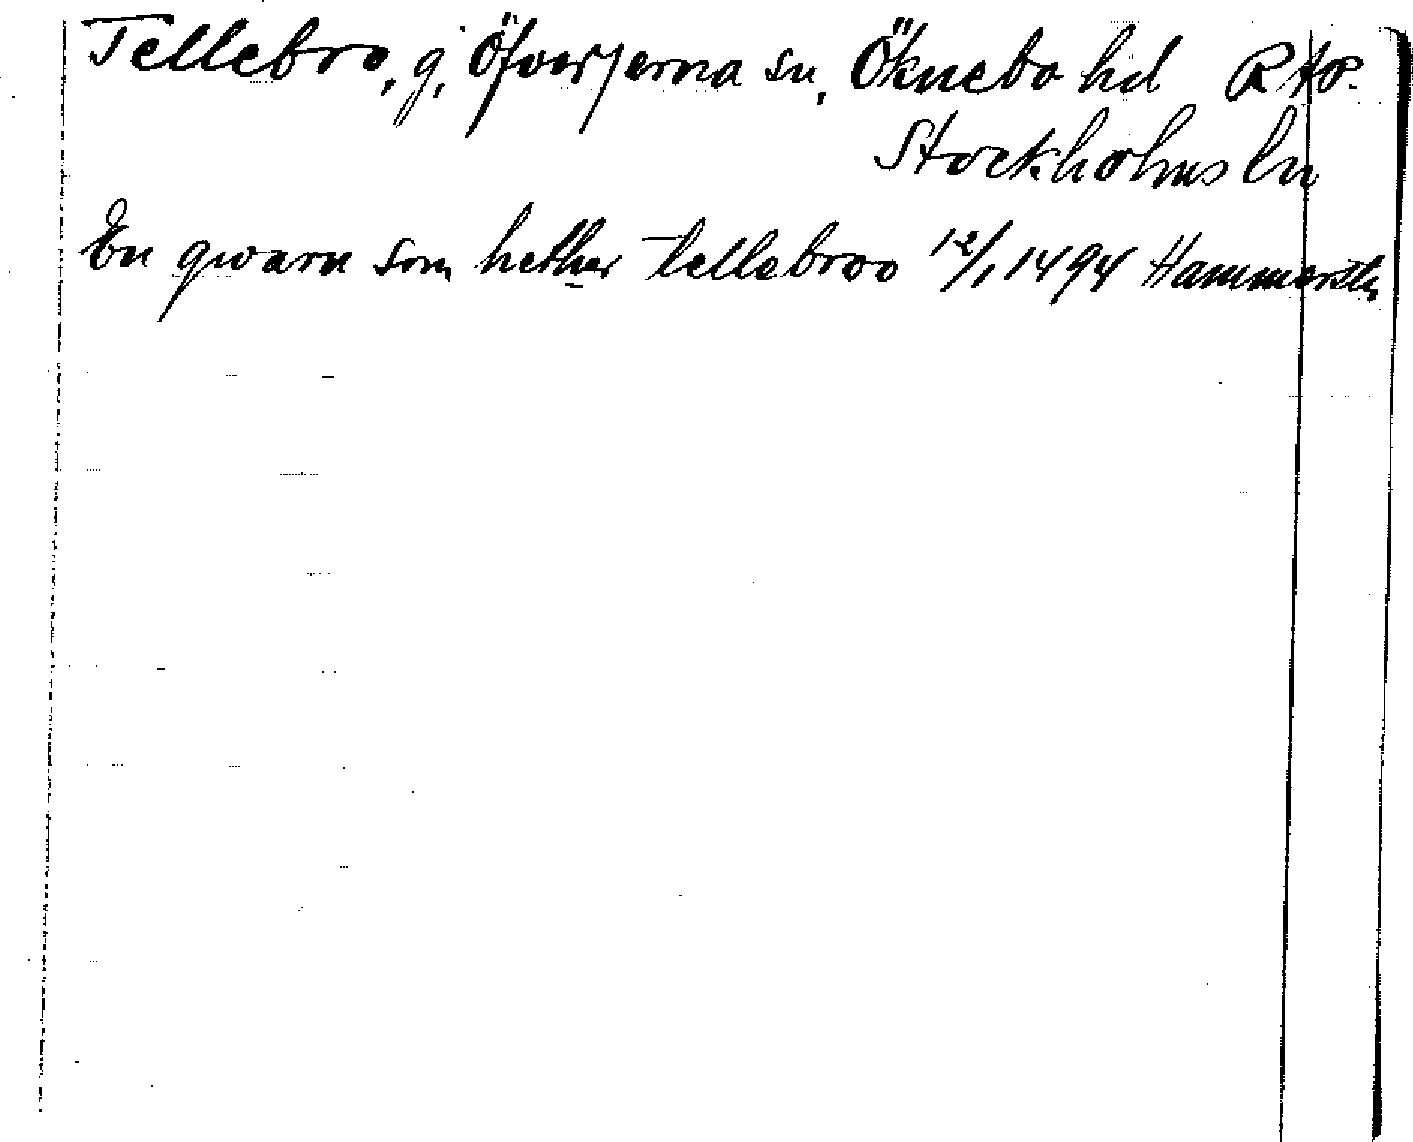 Tellebro, g, Öfverjerna sn, Öknebo hd
Stockholms ln
En qwarn som hether tellebroo 12/1 1494 Hammersta